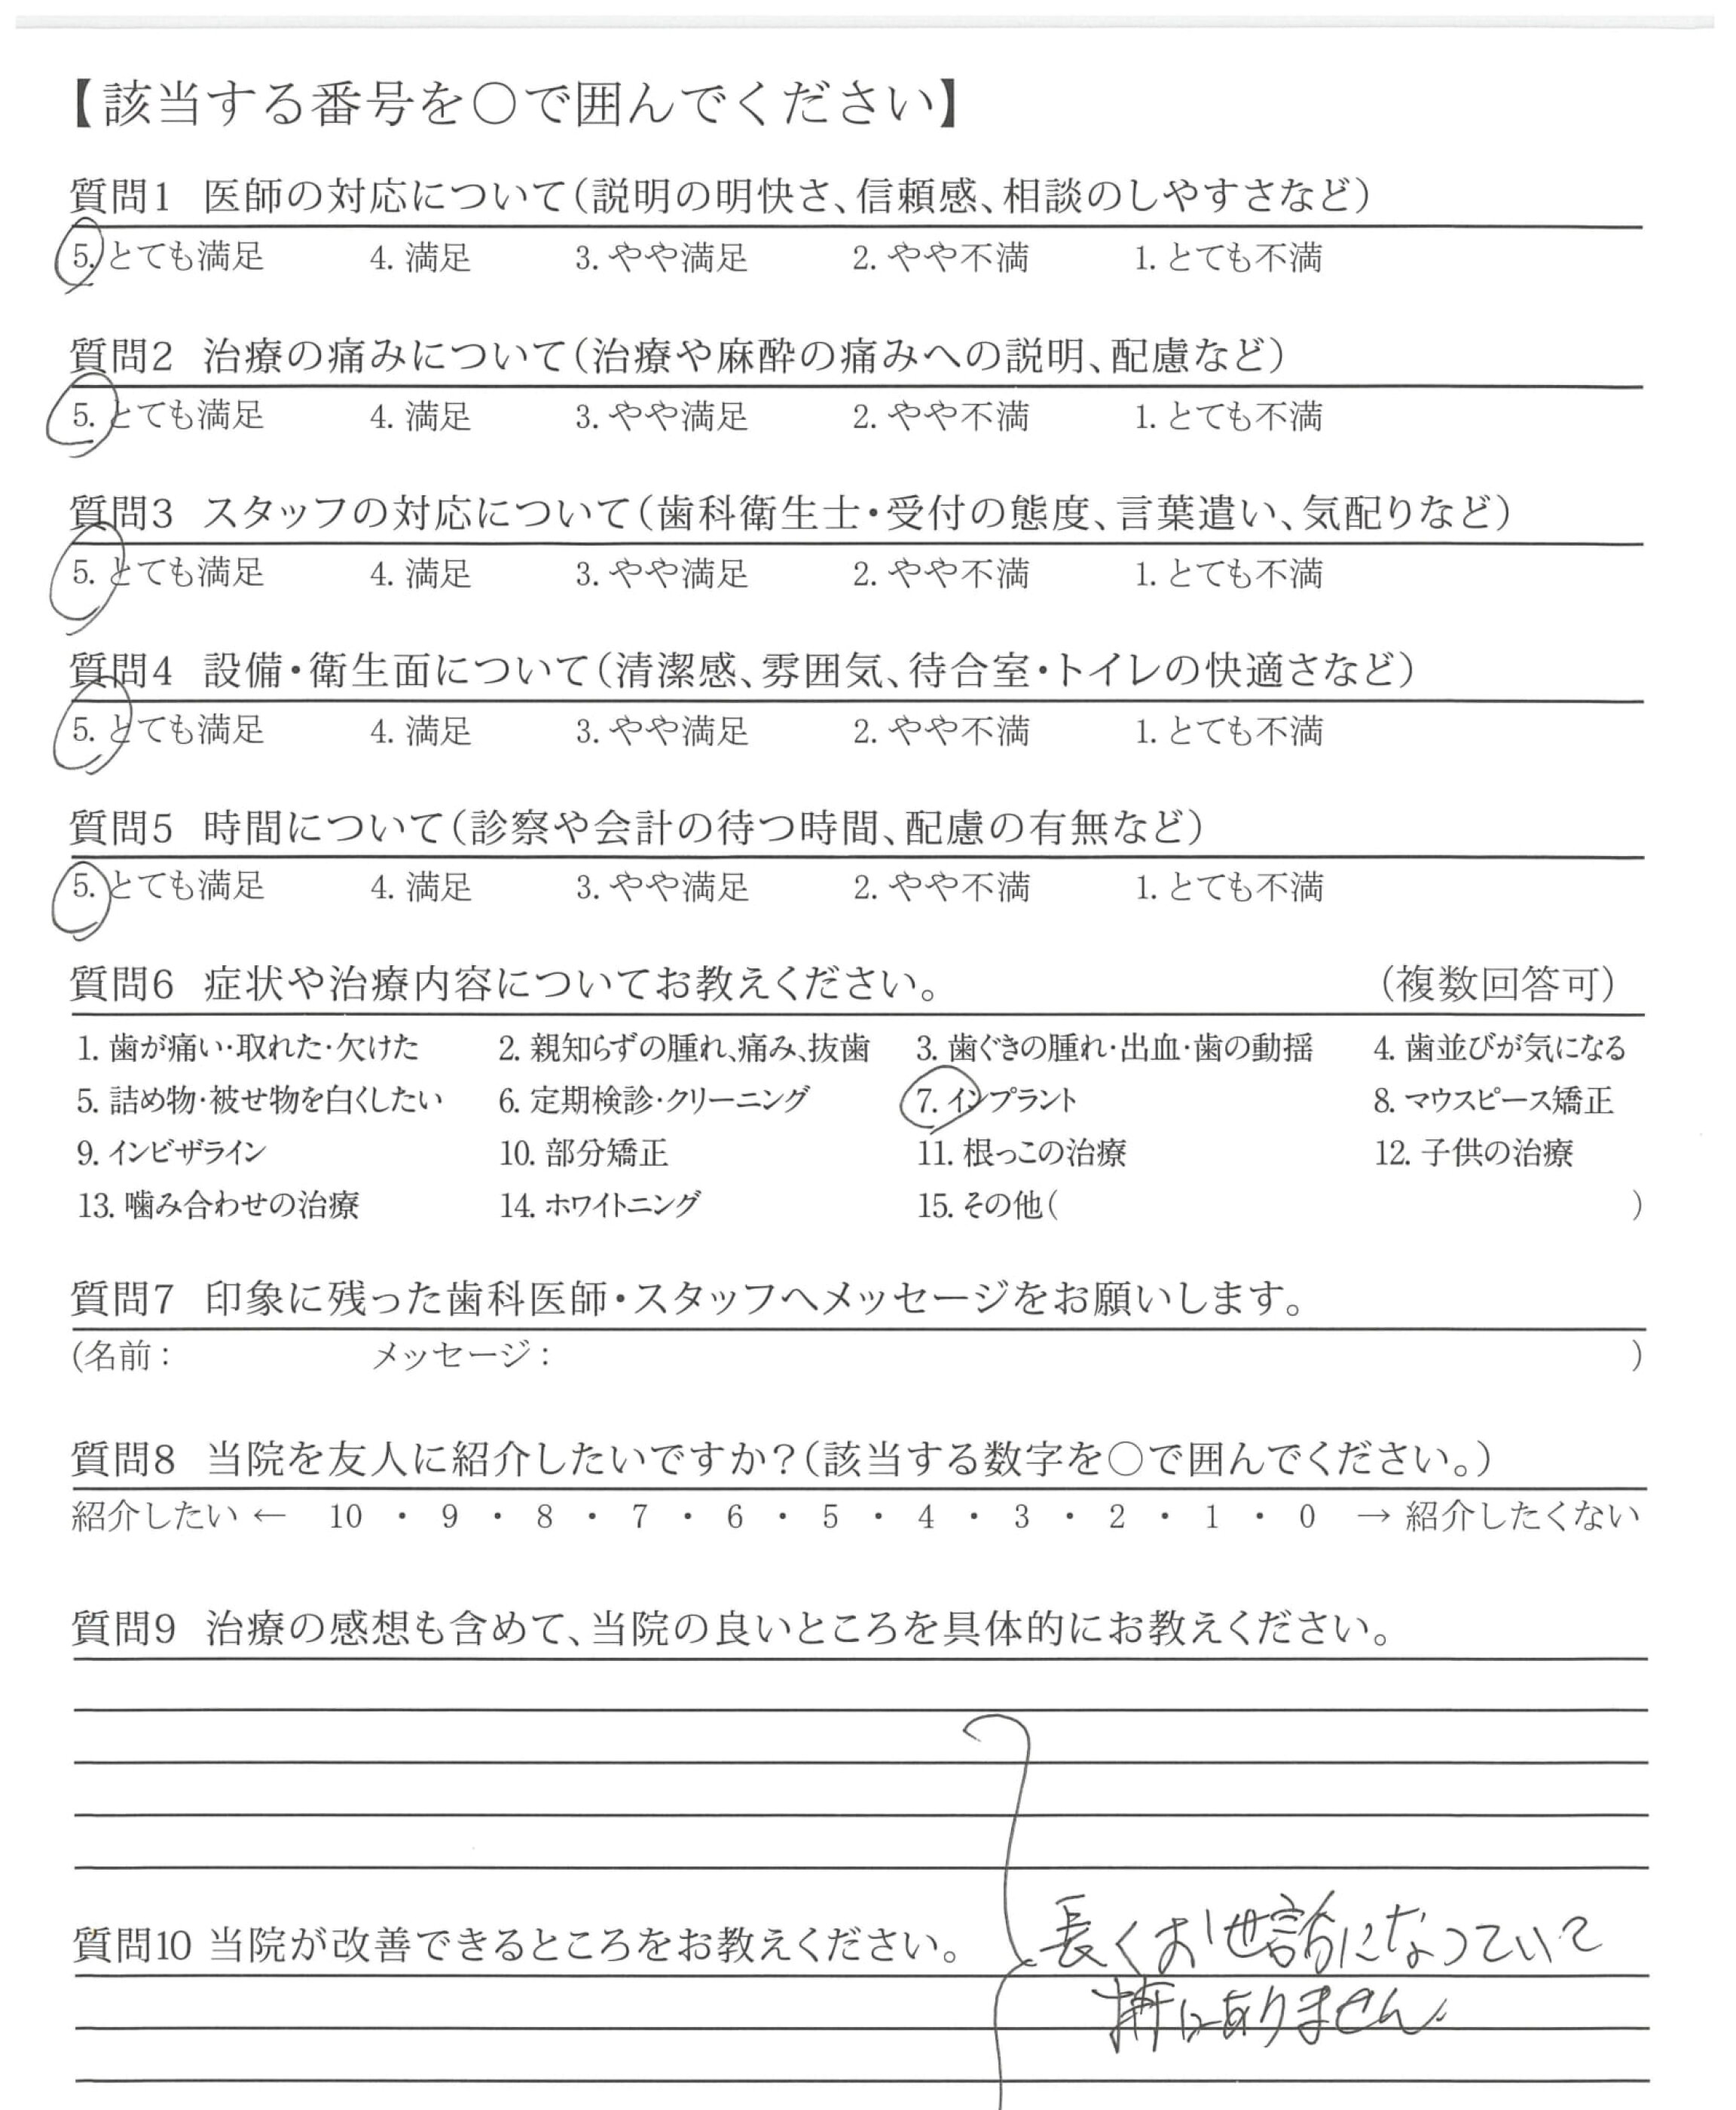 【該当する番号を○で囲んでください】
質問1 医師の対応について(説明の明快さ、信頼感、相談のしやすさなど)
5. とても満足 4. 満足 3. やや満足 2. やや不満 1. とても不満
質問2 治療の痛みについて(治療や麻酔の痛みへの説明、配慮など)
5. とても満足 4. 満足 3. やや満足 2. やや不満 1. とても不満
質問3 スタッフの対応について(歯科衛生士・受付の態度、言葉遣い、気配りなど)
5. とても満足 4. 満足 3. やや満足 2. やや不満 1. とても不満
質問4 設備・衛生面について(清潔感、雰囲気、待合室・トイレの快適さなど)
5. とても満足 4. 満足 3. やや満足 2. やや不満 1. とても不満
質問5 時間について(診察や会計の待つ時間、配慮の有無など)
5. とても満足 4. 満足 3. やや満足 2. やや不満 1. とても不満
質問6 症状や治療内容についてお教えください。 (複数回答可)
1. 歯が痛い・取れた・欠けた 2. 親知らずの腫れ、痛み、抜歯 3. 歯ぐきの腫れ・出血・歯の動揺 4. 歯並びが気になる
5. 詰め物・被せ物を白くしたい 6. 定期検診・クリーニング 7. インプラント 8. マウスピース矯正
9. インビザライン 10. 部分矯正 11. 根っこの治療 12. 子供の治療
13. 噛み合わせの治療 14. ホワイトニング 15. その他( )
質問7 印象に残った歯科医師・スタッフへメッセージをお願いします。
(名前: メッセージ: )
質問8 当院を友人に紹介したいですか?(該当する数字を○で囲んでください。)
紹介したい ← 10 ・ 9 ・ 8 ・ 7 ・ 6 ・ 5 ・ 4 ・ 3 ・ 2 ・ 1 ・ 0 → 紹介したくない
質問9 治療の感想も含めて、当院の良いところを具体的にお教えください。
質問10 当院が改善できるところをお教えください。
長くお世話になっていて
にありません